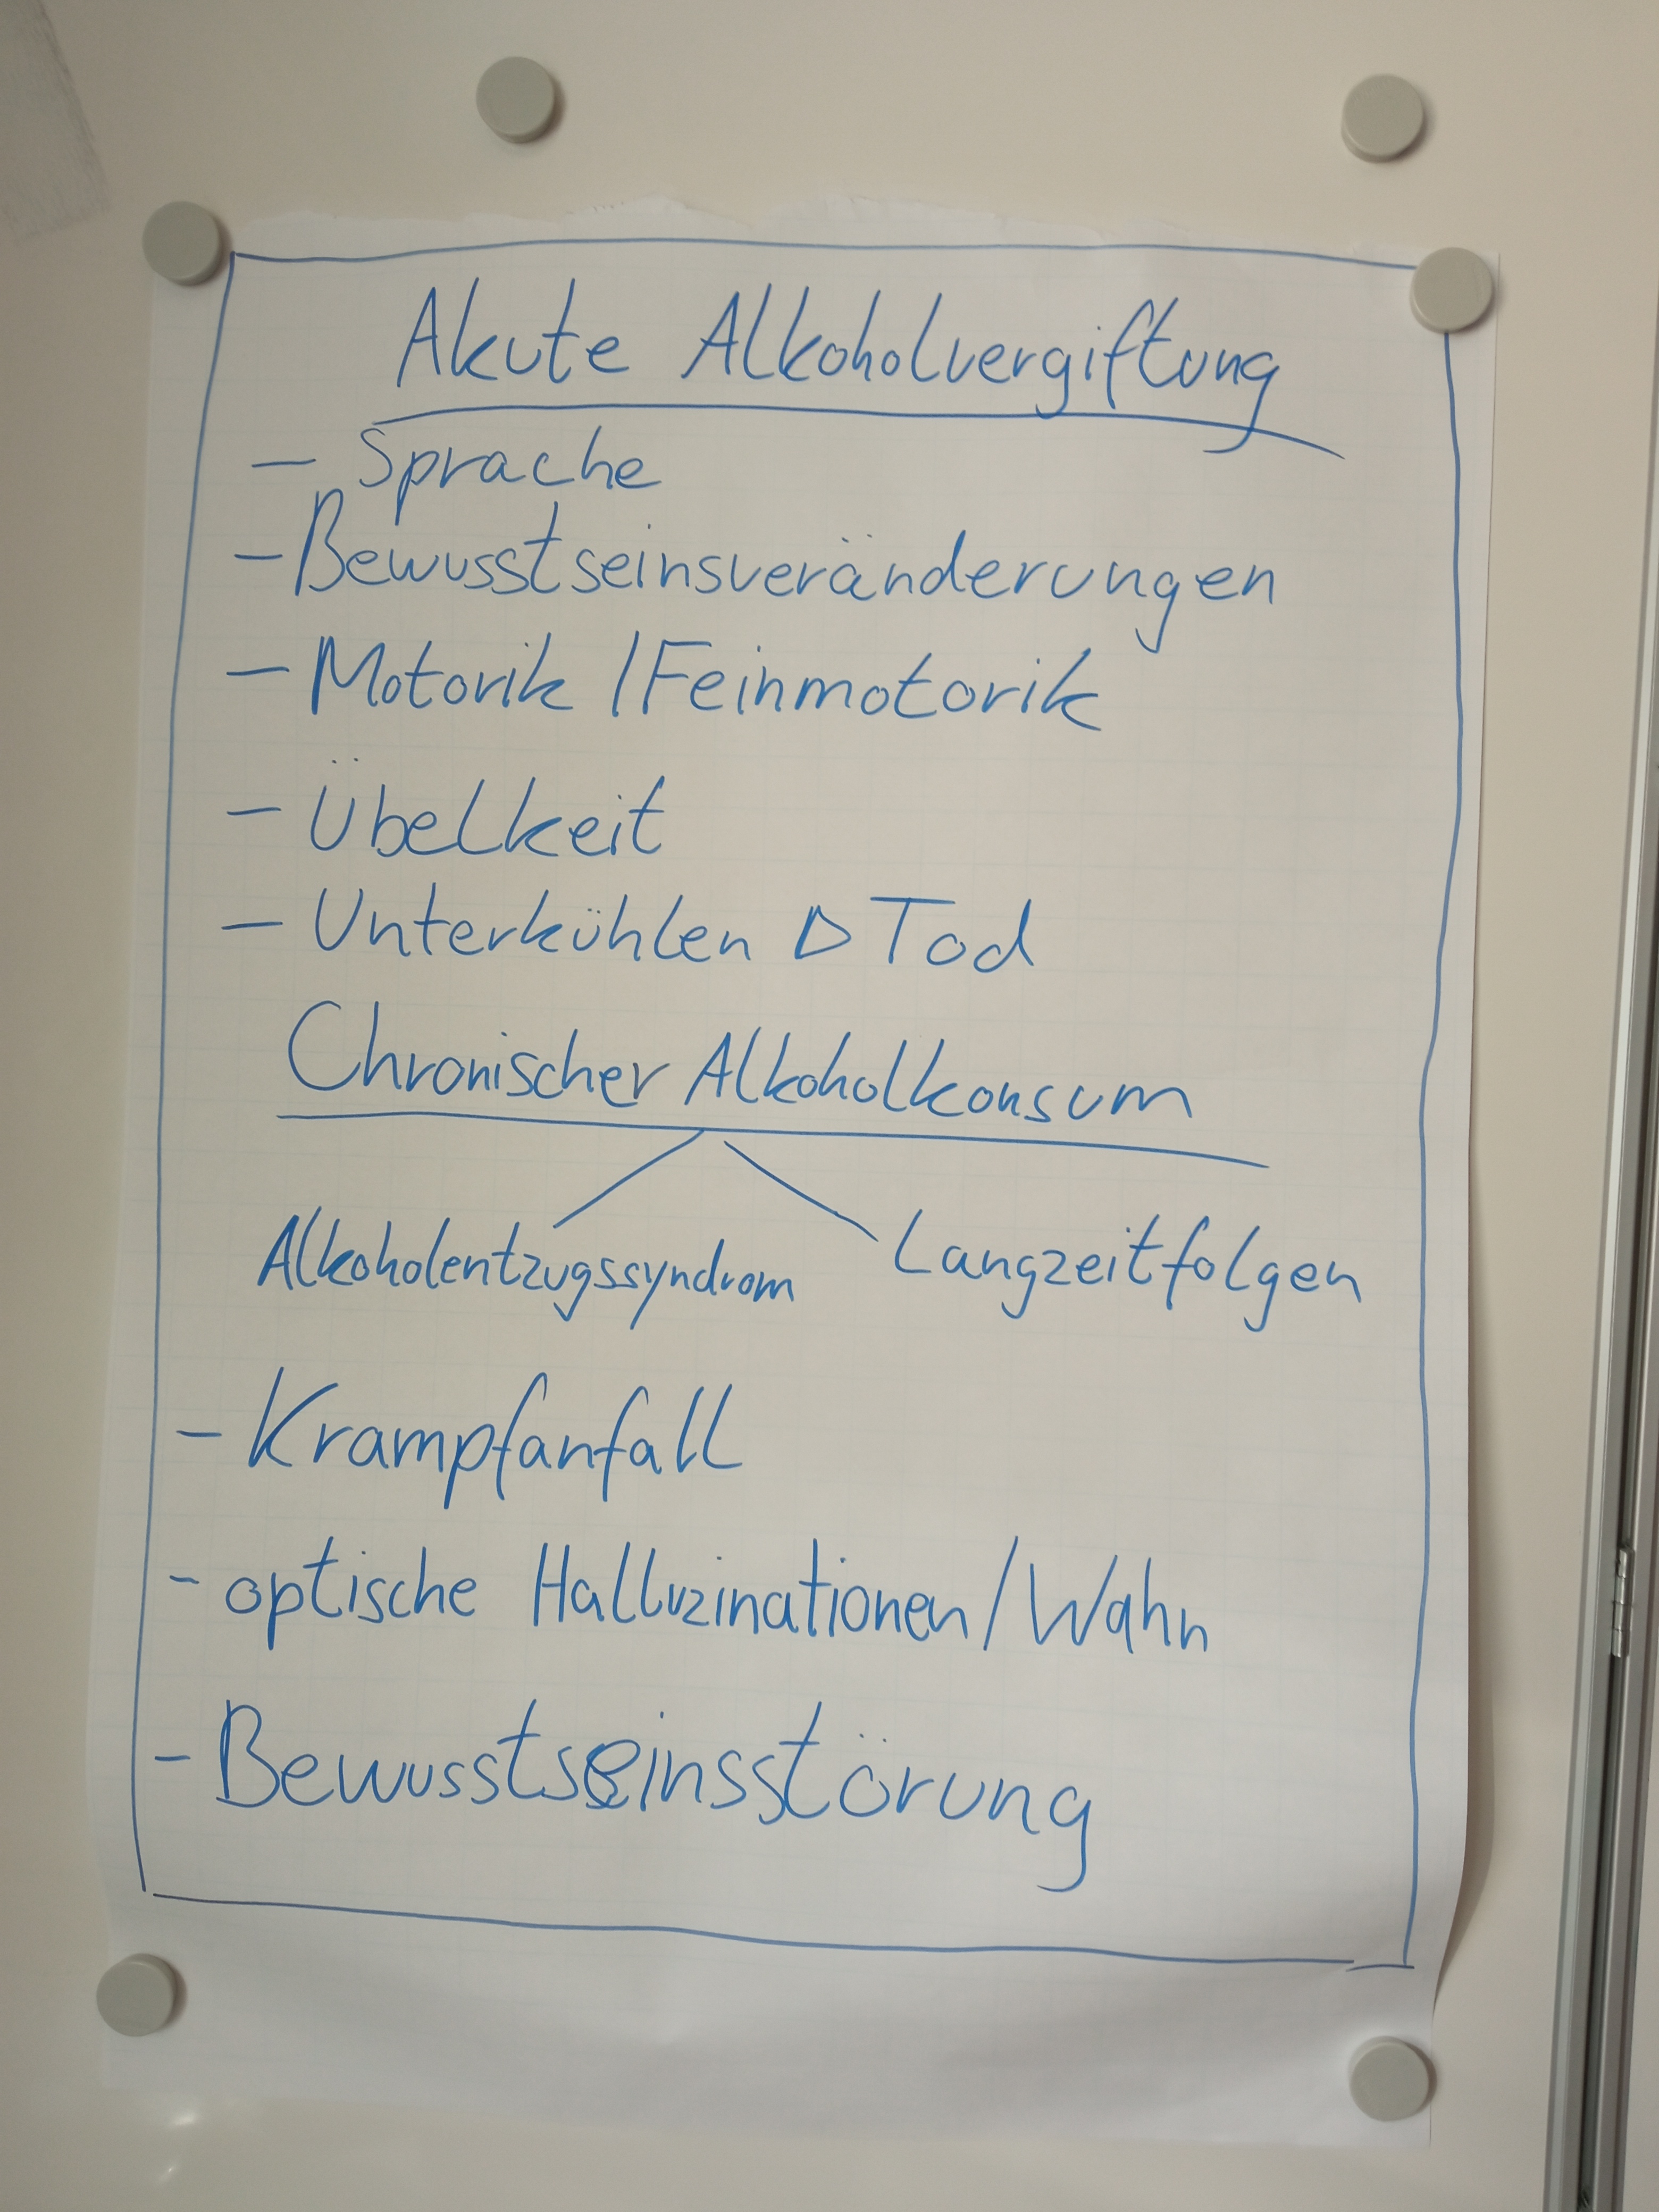 Akute Alkoholvergiftung
- Sprache
- Bewusstseinsveränderungen
- Motorik / Feinmotorik
- Übelkeit
- Unterkühlen ▷ Tod
Chronischer Alkoholkonsum
Alkoholentzugssyndrom Langzeitfolgen
- Krampfanfall
- optische Halluzinationen / Wahn
- Bewusstseinsstörung